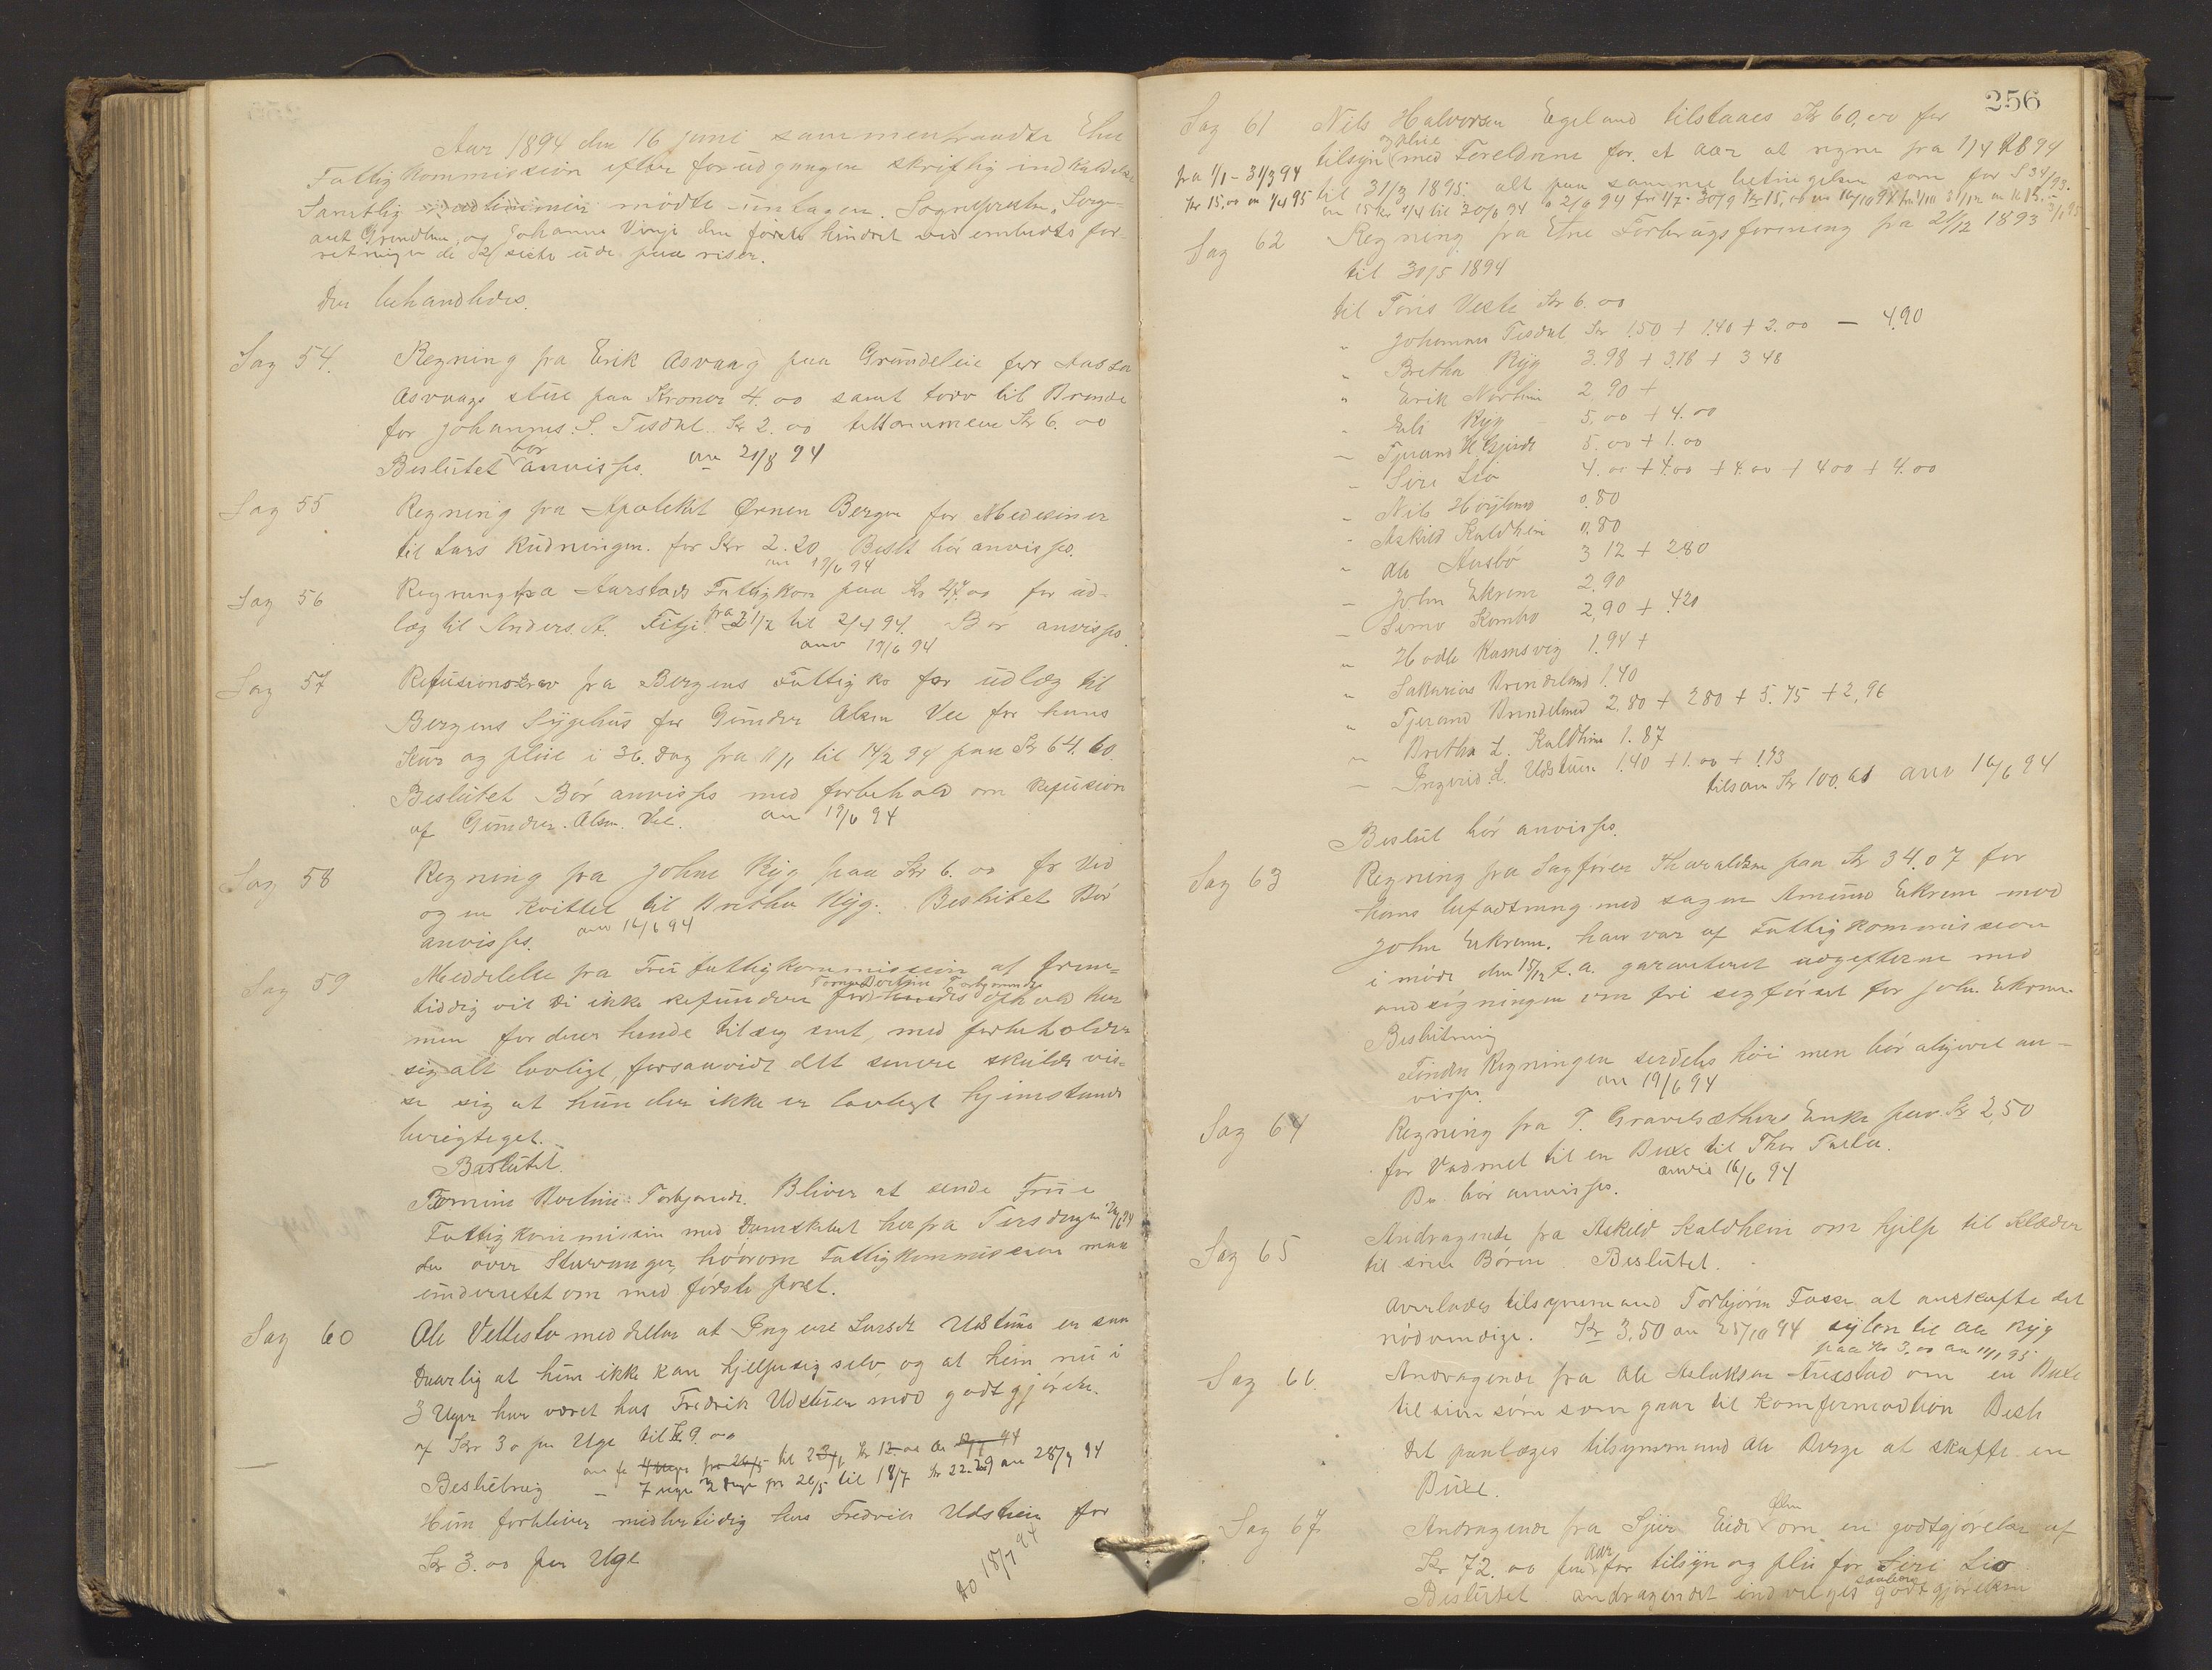 Aar 1894 den 16 juni sammentraadte Etne
Fattigkommission efter forudgaaen skriftlig indkaldelse
Samtlig mødte untagen. Sognepresten, Lorge-
aut Grindhem, og Johannes Vinje den første hindret ved embedts for-
retninger de 2 siste ude paa reiser.
Der behandledes.
Sag 54. Regning fra Erik Asvaag paa Grundleie for Lassa
Asvaags stue paa Kroner 4.00 samt torv til Brende
for Johannes. S. Tesdal Kr 2.00 tilsammen Kr 6.00
Beslutet bør anvises. an 21/8 94
Sag 55 Regning fra Apoteket Ørnen Bergen for Medesiner
til Lars Rudningen. for Kr 2.20 Beslt bør anvises.
an 19/6 94
Sag 56 Regning fra Aarstads Fattigkom paa Kr 27.00 for ud-
læg til Anders. A. Fitje. fra 21/2 til 2/4 94. Bør anvises
anv 19/6 94
Sag 57 Refusionskrav fra Bergens Fattigko for udlæg til
Bergens Sygehus for Gunder Alsen Vee for hans
Kur og pleie i 36. Dag fra 11/1 til 14/2 94 paa Kr 64.60.
Beslutet Bør anvises med forbehold om Refusion
af Gunder. Alsen. Vee. an 19/6 94
Sag 58 Regning fra Johne Ryg paa Kr 6.00 for Ved
og en Kvittel til Bretha Ryg. Beslutet Bør
anvises. anv 16/6 94
Sag 59 Meddelelse fra Frue fattigkommission at frem-
tiddig vil di ikke refundere for Tomine Dortine Torbjornsdt ophold her
men fordrer hende tilsig sent, med forbeholder
sig alt lovligt, forsaavidt dett senere skulde vis-
se sig at hun der ikke er lovligt hjemstands
berigtiget.
Beslutet.
Tomine Dortine Torbjornsdt. Bliver at sende Frue
Fattigkommission med Damskibet herfra Tirsdagen 26/6 94
der over Stavanger, hvorom Fattigkommissionen maa
underretet om med første post.
Sag 60 Ole Vettestø meddeller at Ingerid Larsdt Udstuen er saa
daarlig at hun ikke kan hjelpesig selv og at hun nu i
3 Uger har været hos Fredrik Udstuen mod godtgjørelse.
af Kr 3.00 per Uge til Kr 9.00
an for 4 uger fra 26/5 til 23/6 Kr 12.00 an 17/7 94
Beslutning — 7 uger 3 dage fra 26/5 til 18/7 Kr 22.29 an 28/7 94
Hun forbliver midlertidig hos Fredrik Udstuen for
Kr 3.00 per Uge
do 18/7 94
256
Sag 61 Nils Halvorsen Egeland tilstaaes Kr 60,00 for
tilsyn og pleie med Foreldrene for et aar at regne fra 1/4 1894
fra 1/1 - 31/3 94 til 31/3 1895. alt paa samme betingelser som for S 34/93.
Kr 15,00 an 1/4 95 an 15 Kr 1/4 til 30/6 94 a 2/9 94 for 1/7 - 30/9 Kr 15,00
Sag 62 Regning fra Etne Forbrugsforening fra 21/12 1893
til 30/5 1894
til Tøris Veste Kr 6.00
" Johannes Tesdal Kr 1.50 + 1.40 + 2.00 — 4.90
" Bretha Ryg 3.98 + 3.18 + 3 48
" Erik Nortun 2,90 +
" Eli Ryg 5,00 + 4.00
— Tjerand H. Gjerde 5.00 + 1.00
— Siri Lio 4.00 + 4.00 + 4.00 + 4 00 + 4.00
" Nils Høyland 0.80
" Askild Kaldheim 0.80
" Ole Austbø 3 12 + 280
— John Ekrem 2.90
— Simo Kambo 2,90 + .420
" Hodle Kamsvig 1.94 +
" Sakarias Brendeland 1.40
" Tjerand Brendeland 2.80 + 280 + 5.75 + 2,96
" Bretha L. Kaldheim 1.87
— Ingerid. L. Udstuen 1.40 + 1.00 + 1.73
tilsam Kr 100.61 anv 16/6 94
Beslut bør anvises.
Sag 63 Regning fra Sagfører Tharaldsen paa Kr 34.07 for
hans befadtning med sagen Amund Ekrem mod
John Ekrem. han var af Fattigkommissionen
i møde den 15/12 f.a. garanteret udgifterne med
andsøgningen om fri sagførsel for John Ekrem.
Beslutning
Finder Regningen serdeles høi men bør aligevel an-
vises. an 19/6 94
Sag 64 Regning fra T. Gravelsæthers Enke paa Kr 2,50
for Vadmel til en Buxe til Thor Tæla.
Be. bør anvises. anvis 16/6 94
Sag 65 Andragende fra Askild Kaldhein om hjelp til Klæder
til sine Børn. Beslutet.
Averlades tilsynsmand Torbjørn Fosse at anskafte det
nødvendige. Kr 3,50 an 25/10 94 syløn til Ole Ryg
paa Kr 3,00 an 11/1 95
Sag 66. Andragende fra Ole Aslaksen Frustad om en Buxe
til sin søn som gaar til Komfermadtion Besl.
Det paalægges tilsynsmand Ole Berge at skaffe en
Buxe.
Sag 67 Andragende fra Sjur Eide Ølen om en godtgjørelse af
Kr 72.00 per Aar for tilsyn og pleie for Siri Lio
Beslutet andragendet indvelges saaledes godtgjørelsen